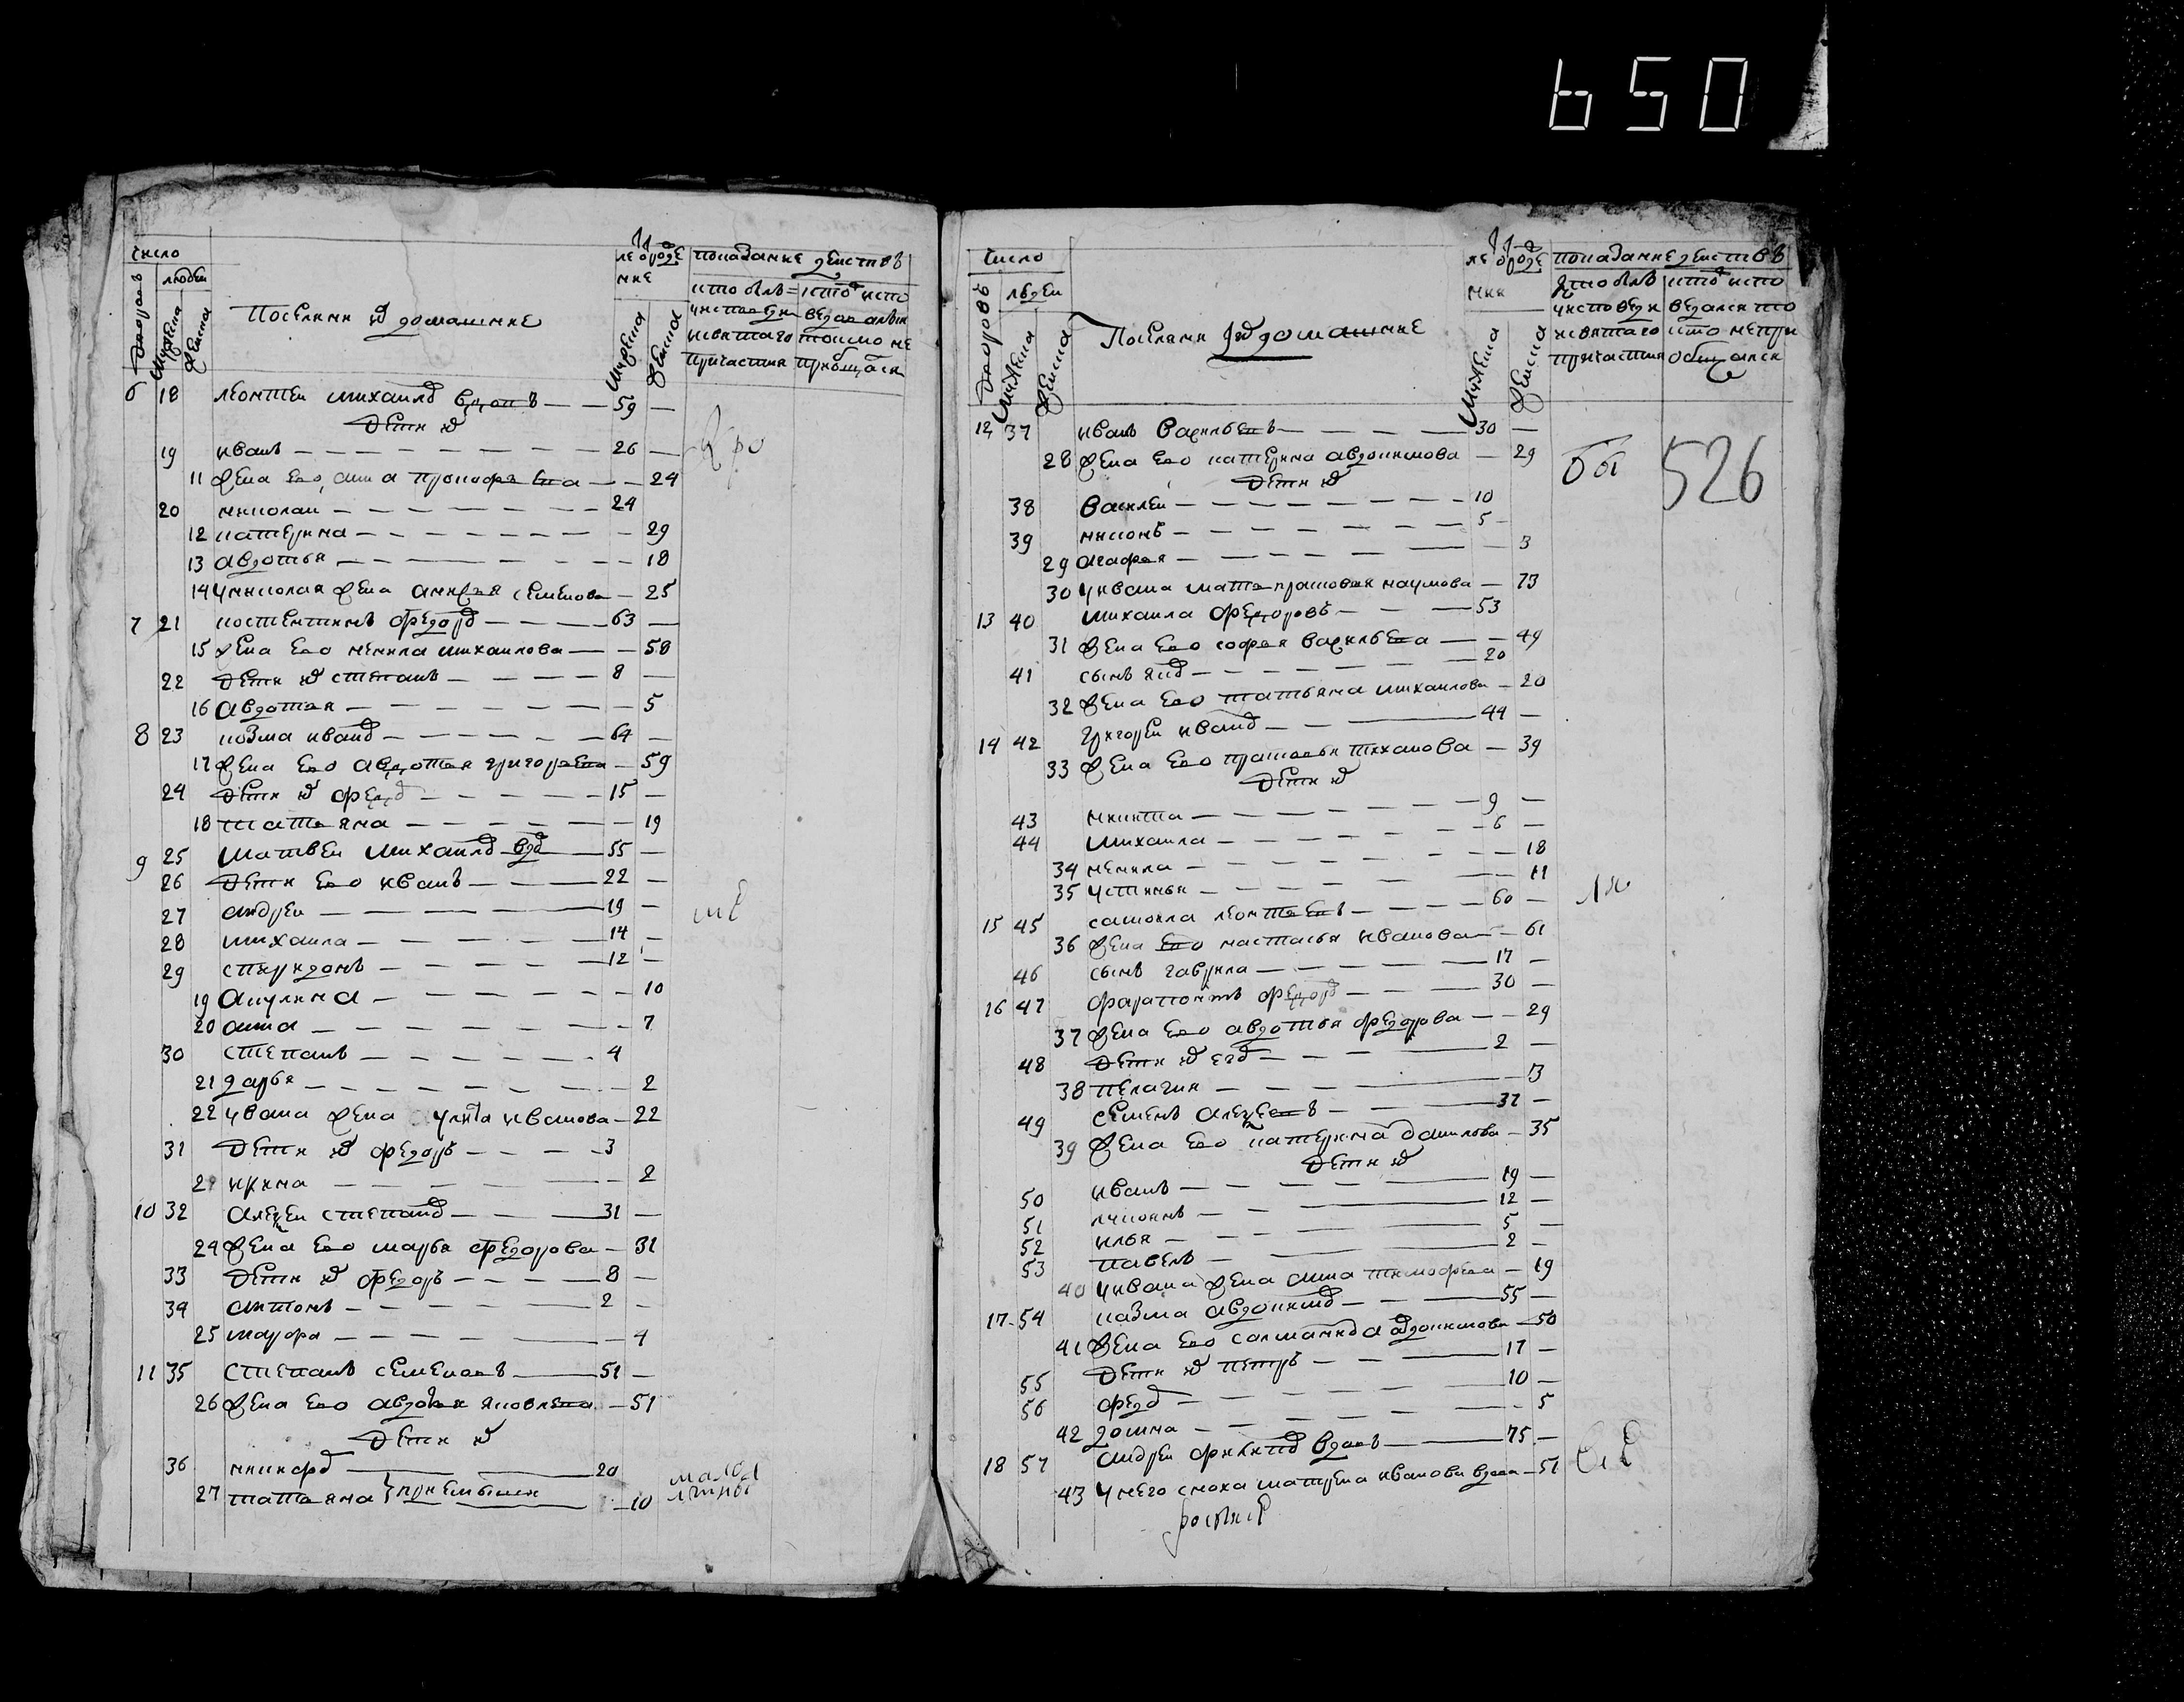 650
число
дворовъ
людей
мужеска
женска
Поселяне и домашние
лета от рожде
ния
мужеска
женска
показание действъ
кто былъ кто испо
у исповеди ведовался
и святаго токмо не
причастия приобщался
6 18 леонтеи михаилов вдовъ 59
дети ево
19 иванъ 26
11 жена ево анна прокофьева 24
20 николаи 24
12 катерина 29
13 авдотья 18
14 у николая жена семенова 25
7 21 костентинъ федоров 63
15 жена ево ненила михаилова 58
22 дети ево степанъ 8
16 авдотья 5
8 23 козма иванов 64
17 жена ево авдотья григорьева 59
24 дети ево федор 15
18 татьяна 19
9 25 матвеи михаилов вдов 55
26 дети ево иванъ 22
27 андреи 19
28 михаила 14
29 спиридонъ 12
19 акулина 10
20 анна 7
30 степанъ 4
21 дарья 2
22 у ивана жена улита иванова 22
31 дети ево федоръ 3
ирина 2
10 32 алексеи степанов 31
24 жена ево марья федорова 31
33 дети ево федоръ 8
34 антонъ 2
25 марфа 4
11 35 степанъ семеновъ 51
26 жена ево авдотья яковлева 51
дети ево
36 никифор 20
27 татьяна приемыши 10
число
дворовъ
людеи
мужеска
женска
Поселяне и их домашние
лета от рожде
нии
мужеска
женска
показание действъ
кто былъ кто испо
у исповеди ведался то
и святаго кто непри
причастия общался
12 37 иванъ васильевъ 30
28 жена ево катерина авдокимова 29
дети ево
526
38 василеи 10
39 никонъ 5
29 агафья 3
30 у ивана мать прасковья наумова 73
13 40 михаила федоровъ 53
31 жена ево софья васильева 49
41 сынъ 20
32 жена ево татьяна михаилова 20
14 42 григореи иванов 44
33 жена ево прасковья тиханова 39
дети ево
43 никита 9
44 михаила 6
34 ненила 18
35 устинья 11
15 45 самоила леонтьевъ 60
36 жена ево настасья иванова 61
46 сынъ гаврила 17
16 47 фарапонтъ федоров 30
37 жена ево авдотья федорова 29
48 дети ево 2
38 пелагия 13
49 семенъ алексеевъ 37
39 жена ево катерина данилова 35
дети ево
50 иванъ 19
51 лукоянъ 12
52 илья 5
53 павелъ 2
40 у ивана жена анна тимофеева 19
17 54 козма авдокимов 55
41 жена ево саламанида авдокимова 50
55 дети ево петръ 17
56 федор 10
42 домна 5
18 57 андреи филипов вдовъ 75
43 у него сноха матрена иванова вдова 51